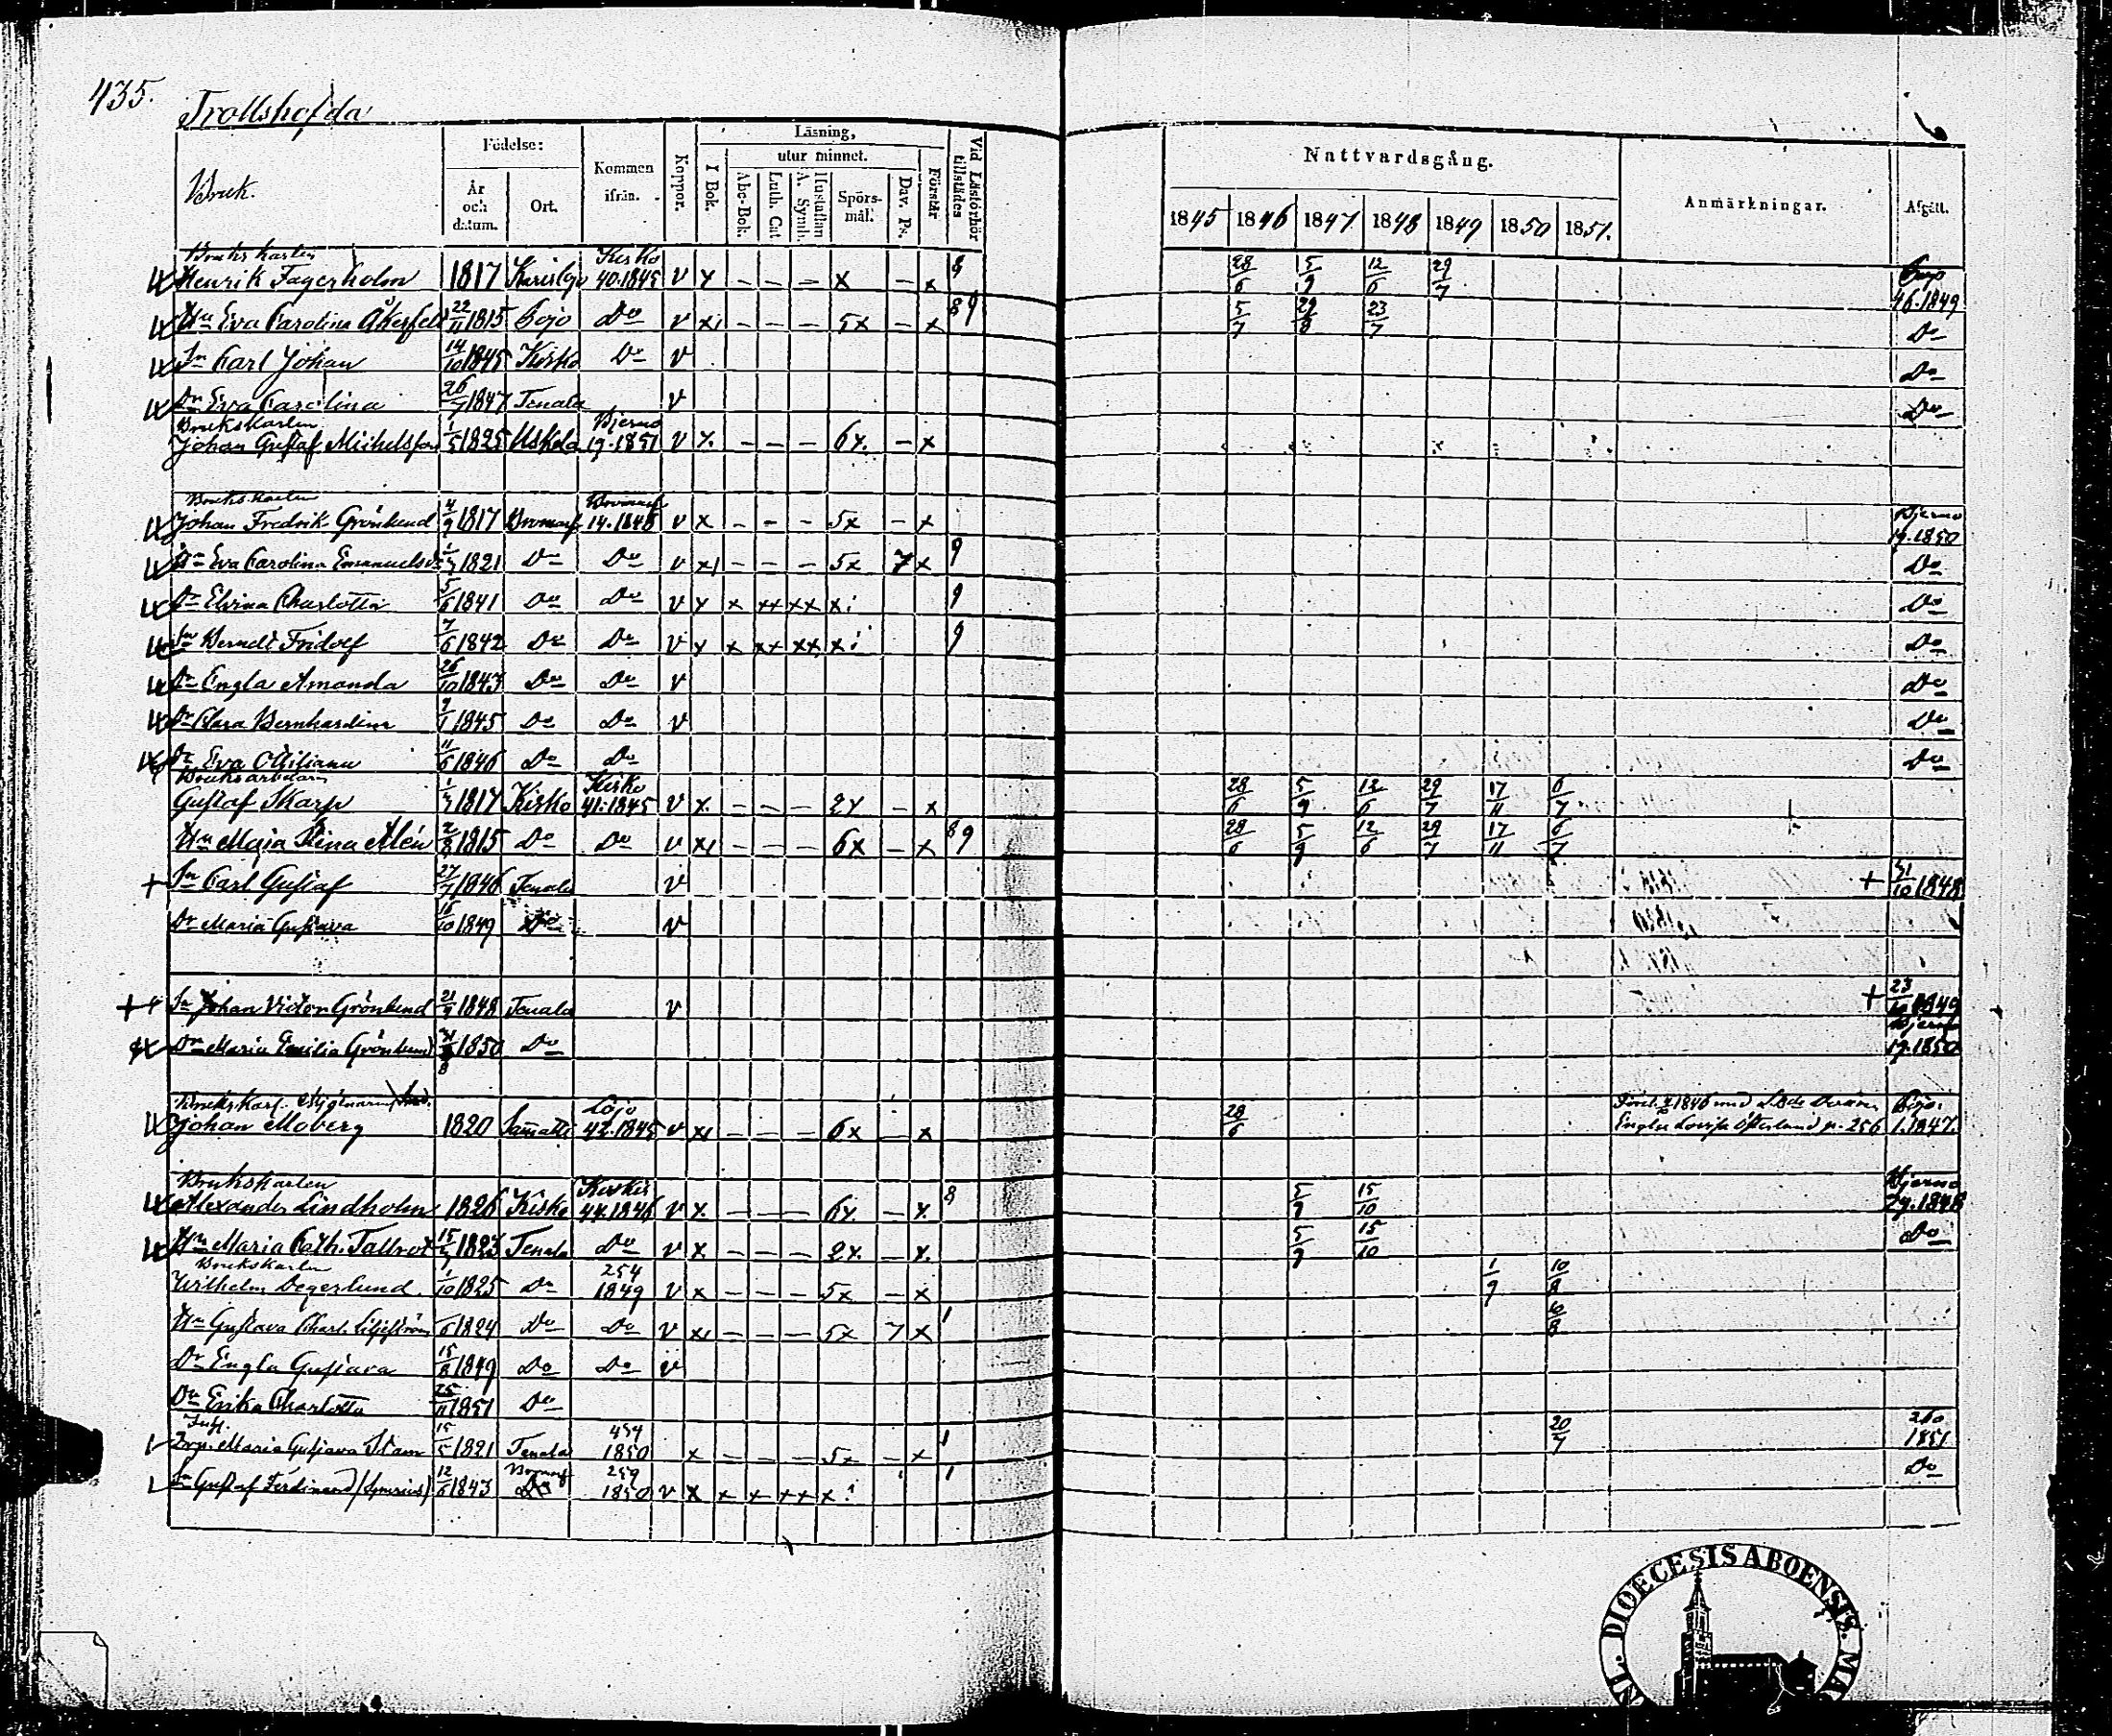 435.
Trollshofda
Bruk.
Födelse:
År och datum.
Ort.
Kommen ifrån.
Koppor.
Läsning,
I Bok.
utur minnet.
Abc-Bok.
Luth. Cat.
A. Symb. Hustaflan
Spörsmål.
Dav. Ps.
Förstår
Vid Läsförhör tillstädes
Nattvardsgång.
1845 1846 1847 1848 1849 1850 1851.
Anmärkningar.
Afgått.
Brukskarlen Kisko
Henrik Fagerholm 1817 Karislojo 40.1845 v x – – – x – x 28/6 5/9 12/6 29/7 46.1849
Hu Eva Carolina Åkerfelt 22/11 1815 Lojo Do v x – – – 5x – x 89 5/7 29/8 23/7 Do
Sn Carl Johan 14/10 1845 Kisko Do v Do
Dr Eva Carolina 26/7 1847 Tenala v Do
Brukskarlen Bjerno
Johan Gustaf Michelsson 1/5 1825 Uskela 19.1851 v x – – – 6x – x
Brukskarlen Bromarf
Johan Fredrik Grönlund 4/9 1817 Bromarf 14.1848 v x – – – 5x – x Bjerno 19.1850
Hu Eva Carolina Emanuelsdr 1821 Do Do v x – – – 5x 7 x 9 Do
Dr Elvina Charlotta 5/6 1841 Do Do v x x xx xx x 9 Do
Sn Berndt Fridolf 7/6 1842 Do Do v x x xx xx x 9 Do
Dr Engla Amanda 26/10 1843 Do Do v Do
Dr Clara Bernhardina 9/1 1845 Do Do v Do
Dr Eva 11/6 1846 Do Do Do
Bruksarbetaren Kisko
Gustaf Skarp 1817 Kisko 41.1845 v x – – – 2x – x 28/6 5/9 12/6 29/7 17/11 6/7
Hu Maja Stina Alén 1815 Do Do v x – – – 6x – x 89 28/6 5/9 12/6 29/7 17/11 6/7
+ Sn Carl Gustaf 27/7 1846 Tenala v + 31/10 1848
Dr Maria Gustava 1849 Do v
+ Sn Johan Victor Grönlund 21/9 1848 Tenala v + 23/10 1849
Dr Maria Emilia Grönlund 1850 Do Bjerno 19.1850
Lojo
Johan Moberg 1820 Sammatti 42.1845 v x – – – 6x – x 28/6 Engla Lovisa Österlund p. 256 1.1847.
Brukskarlen
Alexander Lindholm 1826 Kisko 44.1846 v x – – – 6x – x 8 5/9 15/10 Bjerno 29.1848
Hu Maria Cath. Tallrot 1823 Tenala Do v x – – – 2x – x 5/9 15/10 Do
Brukskarlen 254
Wilhelm Degerlund 1/10 1825 Do 1849 v x – – – 5x – x 1/9 10/8
Hu Gustava Charl. Liljeström 1824 Do Do v x – – – 5x 7 x 1 10/8
Dr Engla Gustava 15/8 1849 Do Do v
Dr Erika Charlotta 25/11 1851 Do
Inh. 454
Maria Gustava Stam 15/5 1821 Tenala 1850 x – – – 5x – x 1 20/7 260 1851
Bromarf 259
Sn Gustaf Ferdinand 12/6 1843 Do 1850 v x x x xx x 1 Do
NL. DIOECESIS ABOENSIS. MA